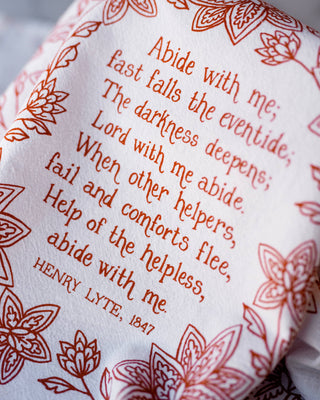 Abide with me;
fast falls the eventide;
The darkness deepens;
Lord with me abide.
When other helpers,
fail and comforts flee,
Help of the helpless,
abide with me.
HENRY LYTE, 1847